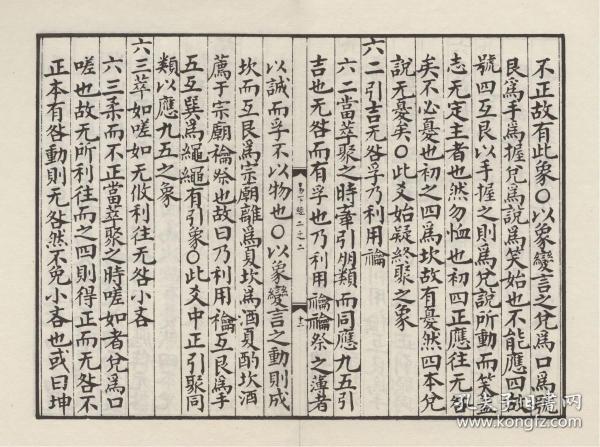 不正故有此象○以象變言之兌爲口爲號
艮爲手爲握兌爲說爲笑始也不能應四故
號四互艮以手握之則爲兌說所動而笑蓋
志无定主者也然勿恤也初四正應往无咎
矣不必憂也初之四爲坎故有憂然四本兌
說无憂矣○此爻始疑終聚之象
六二引吉无咎孚乃利用禴
六二當萃聚之時牽引朋類而同應九五引
吉也无咎而有孚也乃利用禴禴祭之薄者
易下經二之二
十二
以誠而孚不以物也○以象變言之動則成
坎而互艮爲宗廟離爲夏坎爲酒夏酌坎酒
薦于宗廟禴祭也故曰乃利用禴互艮爲手
五互巽爲繩繩有引象○此爻中正引聚同
類以應九五之象
六三萃如嗟如无攸利往无咎小吝
六三柔而不正當萃聚之時嗟如者兌爲口
嗟也故无所利往而之四則得正而无咎不
正本有咎動則无咎然不免小吝也或曰坤
孔夫子旧书网